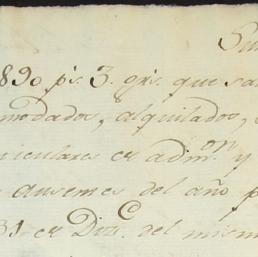 890 p.s 3. gr.s que sa
modados, alquilados,
ticulares en adm.on y
ausemes del año p
31 en Diz.e del mism